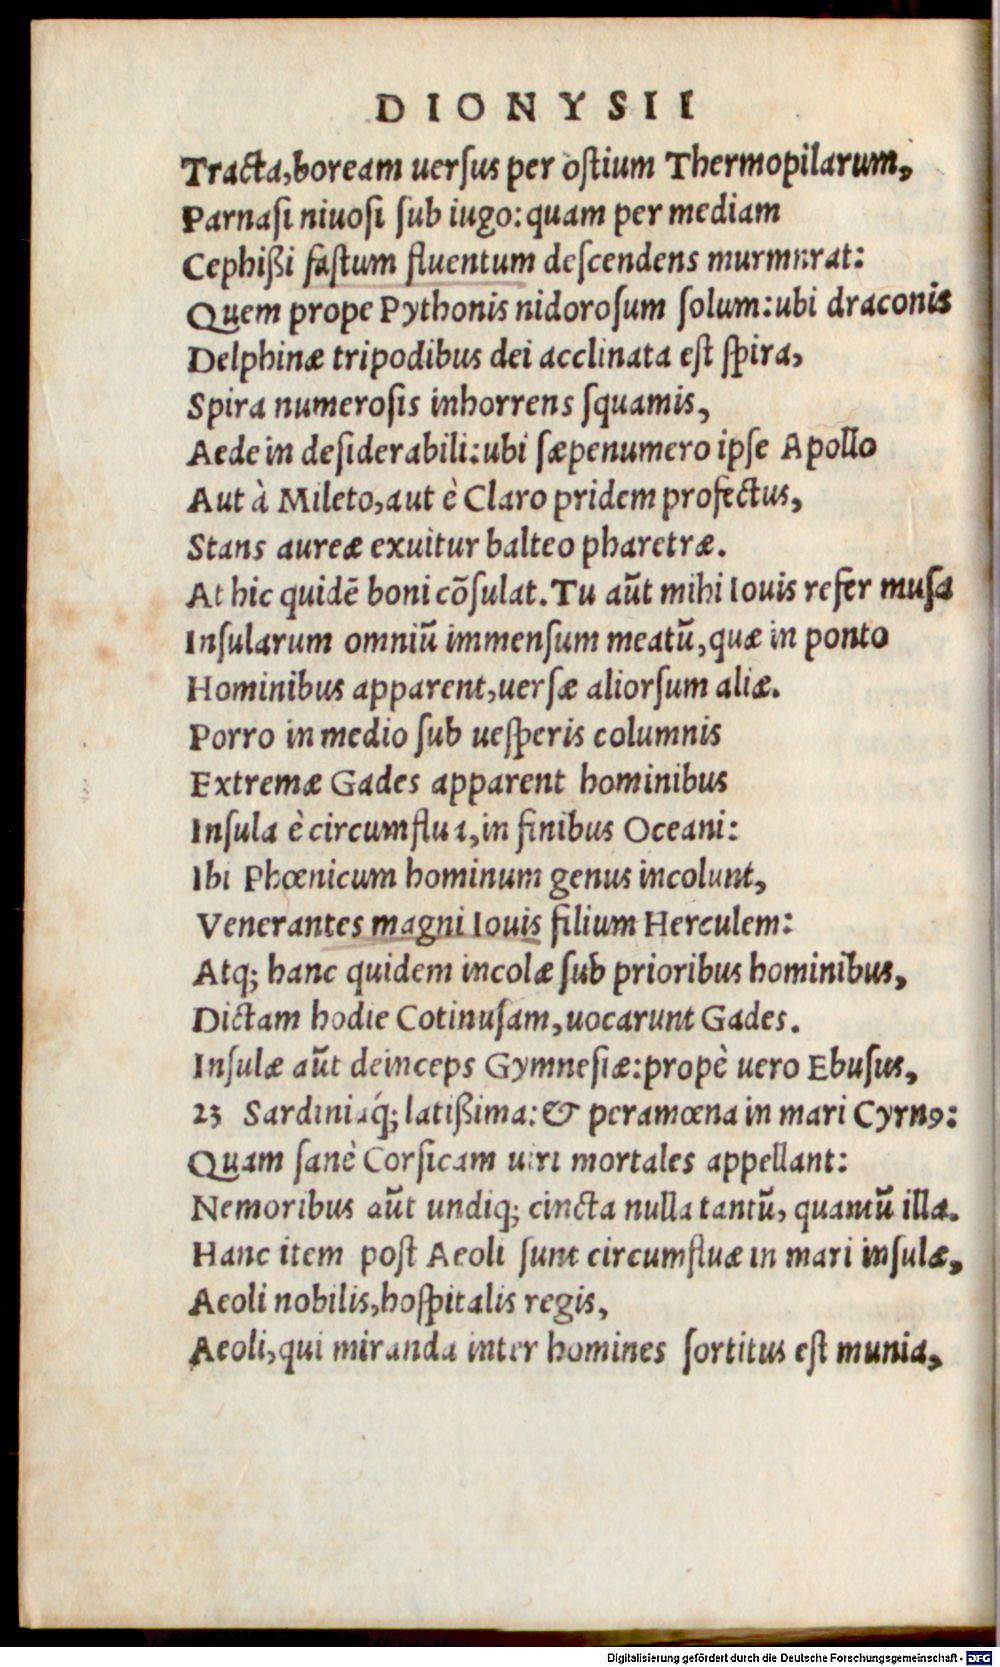 DIONYSII
Tracta, boream uerſus per oſtium Thermopilarum,
Parnaſi niuoſi ſub iugo: quam per mediam
Cephißi faſtum fluentum deſcendens murmurat:
Quem prope Pythonis nidoroſum ſolum: ubi draconis
Delphinæ tripodibus dei acclinata eſt ſpira,
Spira numeroſis inhorrens ſquamis,
Aede in deſiderabili: ubi ſæpenumero ipſe Apollo
Aut à Mileto, aut è Claro pridem profectus,
Stans aureæ exuitur balteo pharetræ.
At hic quidẽ boni cõſulat. Tu aũt mihi Iouis refer muſa
Inſularum omniũ immenſum meatũ, quæ in ponto
Hominibus apparent, uerſæ aliorſum aliæ.
Porro in medio ſub ueſperis columnis
Extremæ Gades apparent hominibus
Inſula è circumflua, in finibus Oceani:
Ibi Phœnicum hominum genus incolunt,
Venerantes magni Iouis filium Herculem:
Atq; hanc quidem incolæ ſub prioribus hominibus,
Dictam hodie Cotinuſam, uocarunt Gades.
Inſulæ aũt deinceps Gymneſiæ: propè uero Ebuſus,
23 Sardiniaq́; latißima: & peramœna in mari Cyrnꝯ:
Quam ſanè Corſicam uiri mortales appellant:
Nemoribus aũt undiq; cincta nulla tantũ, quantũ illa.
Hanc item poſt Aeoli ſunt circumfluæ in mari inſulæ,
Aeoli nobilis, hoſpitalis regis,
Aeoli, qui miranda inter homines ſortitus eſt munia,
Digitalisierung gefördert durch die Deutsche Forschungsgemeinschaft - DFG